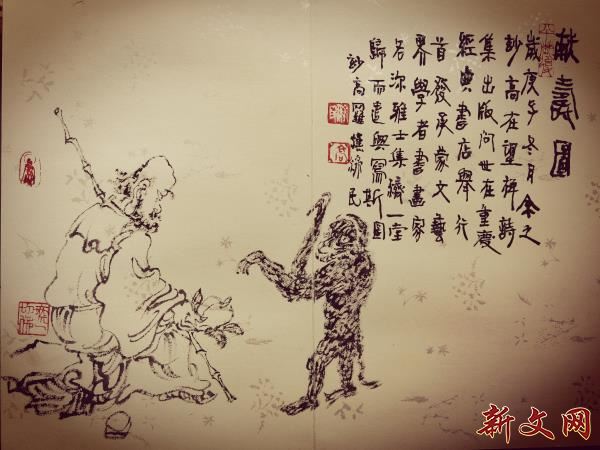 献壽圖
歲庚子冬月余之
妙高在望禅詩
集出版问世在重慶
經典書店舉行
首發承蒙文藝
界學者書畫家
名流雅士集濟一堂
歸而遣興寫斯圖
妙高羅民
新文网